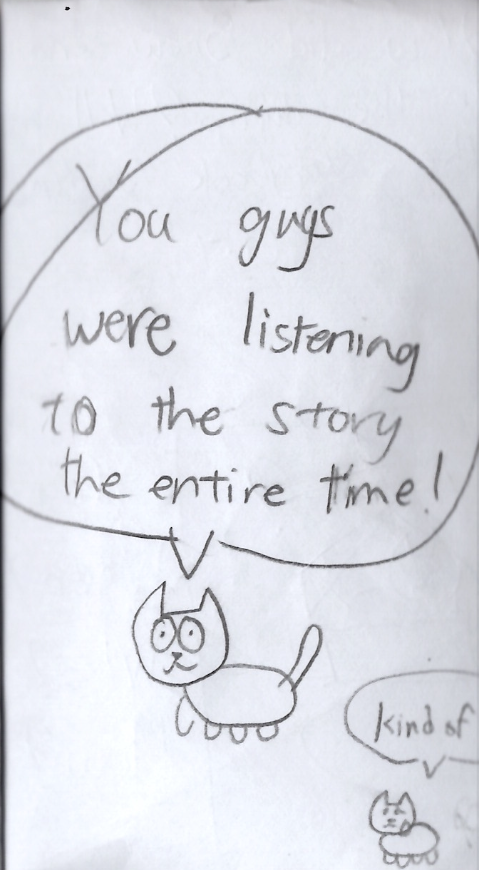 You guys
were listening
to the story
the entire time!
kind of